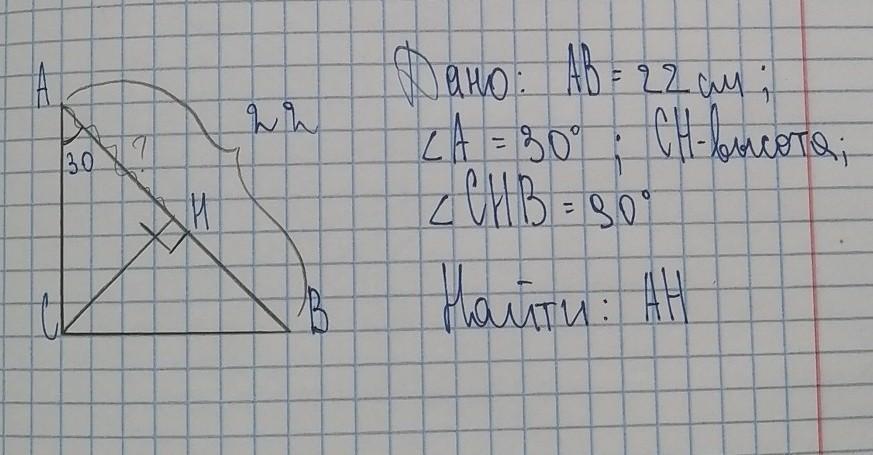 A
22
30
?
H
C
B
Дано: AB = 22 см;
∠A = 30° ; CH-высота;
∠CHB = 90°
Найти: AH